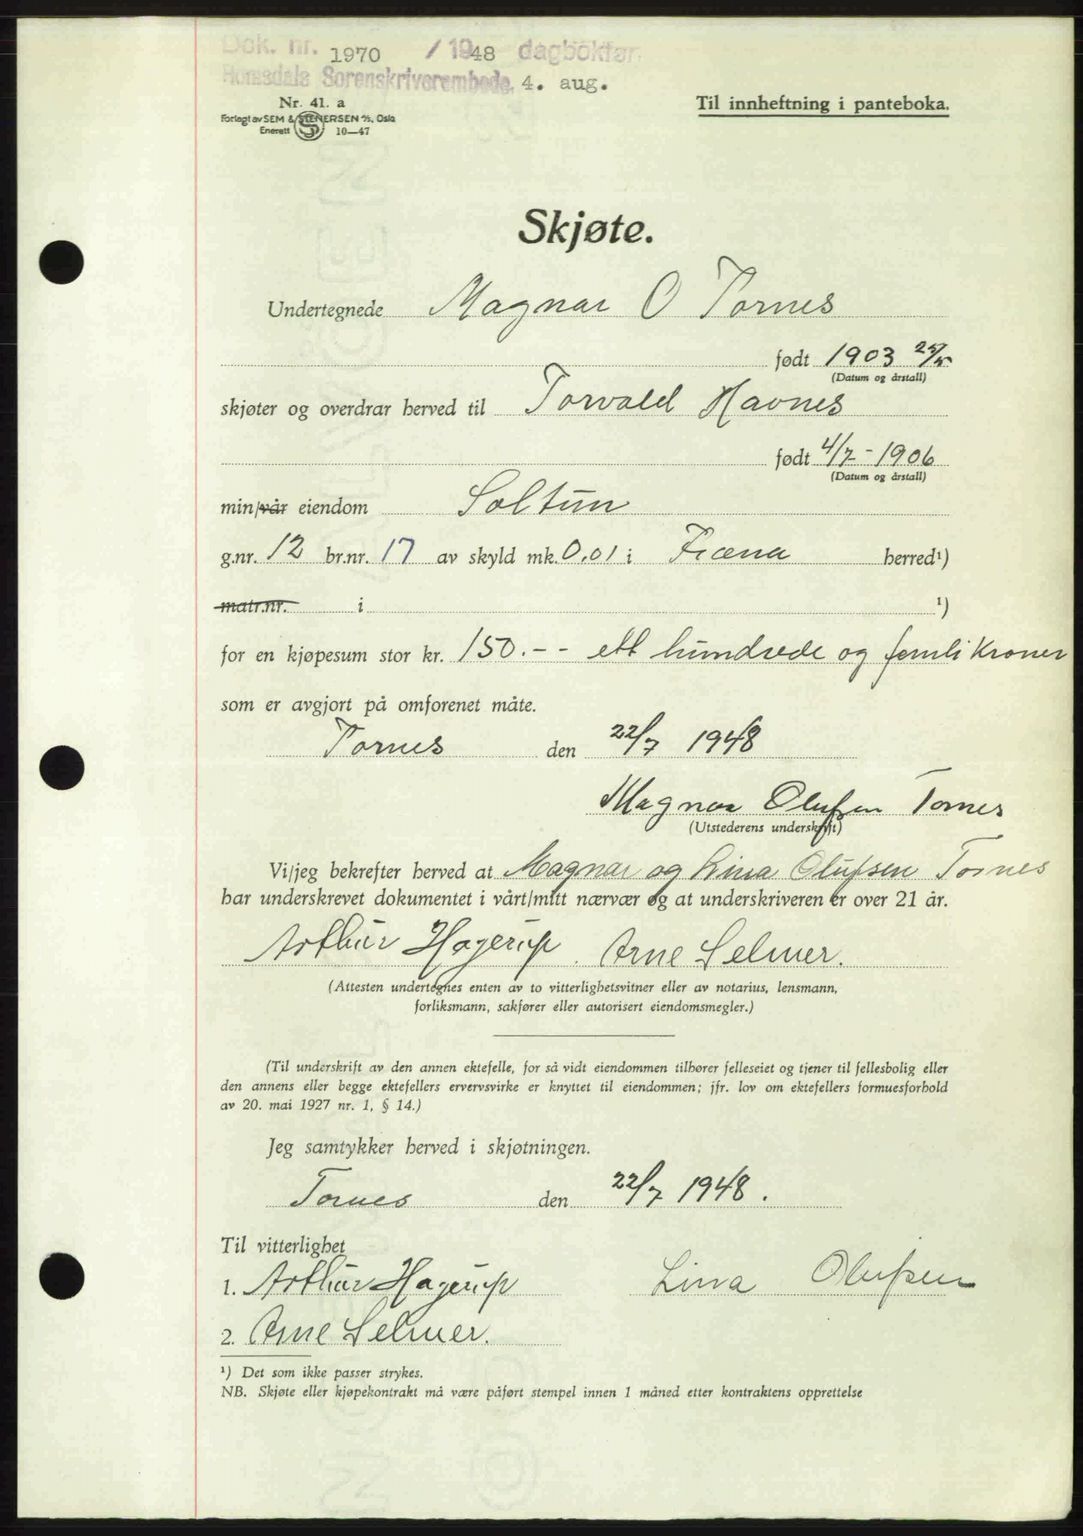 Dok. nr. 1970 / 1948 dagbokfør.
Romsdals Sorenskriverembede. 4. aug.
Nr. 41. a
Forlagt av SEM & STENERSEN A/S, Oslo
Enerett S 10—47
Til innheftning i panteboka.
Skjøte.
Undertegnede Magnar O Tornes
født 1903 25/5
(Datum og årstall)
skjøter og overdrar herved til Torvald Havnes
født 4/7 - 1906
(Datum og årstall)
min/vår eiendom Soltun
g.nr. 12 br.nr. 17 av skyld mk. 0.01 i Fræna herred¹)
matr.nr. i ¹)
for en kjøpesum stor kr. 150.-- ett hundrede og femti kroner
som er avgjort på omforenet måte.
Tornes den 22/7 1948
Magnar Olufsen Tornes
(Utstederens underskrift)
Vi/jeg bekrefter herved at Magnar og Lina Olufsen Tornes
har underskrevet dokumentet i vårt/mitt nærvær og at underskriveren er over 21 år.
Arthur Hagerup. Arne Selmer.
(Attesten undertegnes enten av to vitterlighetsvitner eller av notarius, lensmann,
forliksmann, sakfører eller autorisert eiendomsmegler.)
(Til underskrift av den annen ektefelle, for så vidt eiendommen tilhører felleseiet og tjener til fellesbolig eller
den annens eller begge ektefellers ervervsvirke er knyttet til eiendommen; jfr. lov om ektefellers formuesforhold
av 20. mai 1927 nr. 1, § 14.)
Jeg samtykker herved i skjøtningen.
Tornes den 22/7 1948.
Til vitterlighet
1. Arthur Hagerup Lina Olufsen
2. Arne Selmer.
¹) Det som ikke passer strykes.
NB. Skjøte eller kjøpekontrakt må være påført stempel innen 1 måned etter kontraktens opprettelse